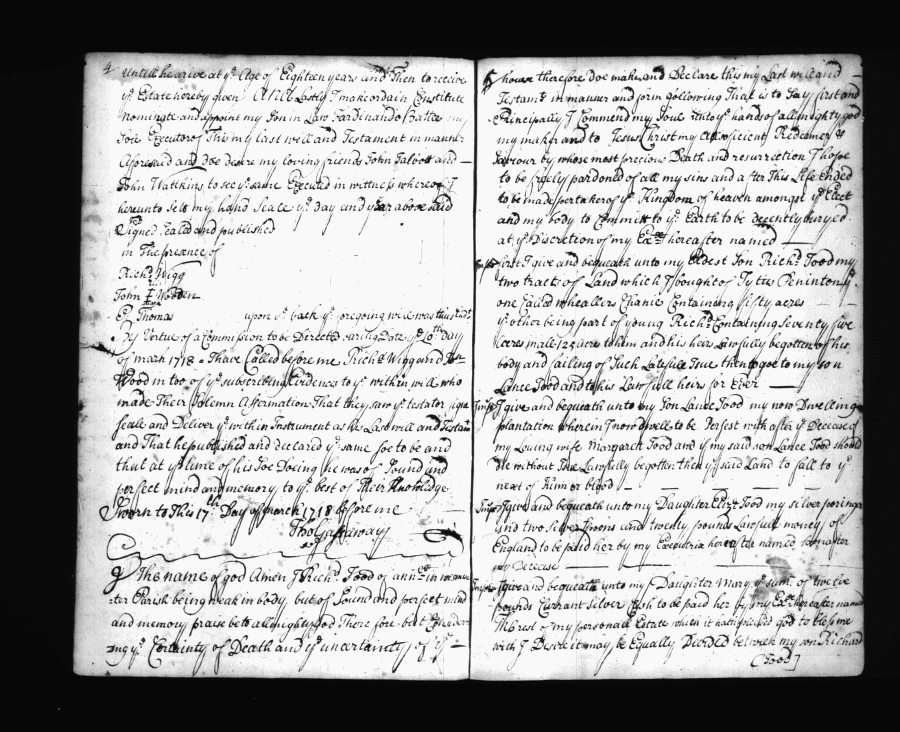 4
Untill he arive at ye Age of Eighteen years and Then to receive
ye Estate hereby given And Lastly I make ordain Constitute
Nominate and appoint my Son in Law Fardinando Battee my
Sole Executor of This my last will and Testament in mannr
Aforesaid and doe desire my loving friends John Talbott and
John Wattkins to see ye same Executed in wittness whereof I
hereunto Sett my hand Seale ye day and year above said
Signed Sealed and published
in The presence of
Richd Wigg
John Worden
E Thomas upon ye back of ye foregoing will was thus
By Vertue of a Commission to be Directed bearing Date ye 10th Day
of march 1718 I have Called before me Richd Wigg and
Wood in two of ye subscribing Evidences to ye within will who
made Their Solemn Affirmation That they saw ye testator signe
Seale and Deliver ye within Instrument as his Last will and Testamt
and That he published and declared ye same soe to be and
that at ye time of his Soe Doeing he was of Sound and
perfect mind and memory to ye best of Their Knowledge
Sworn to This 17th Day of march 1718 before me
Tho Gassaway
In The name of god Amen I Richd Tood of in
ter Parish being weak in body but of Sound and perfect mind
and memory praise be to almighty god Therefore but
ing ye Certainty of Death and ye uncertainty of ye
5
house therefore doe make and Declare this my Last will and
Testamt in manner and form following That is to Say first and
Principally I Commend my Soul unto ye hands of allmighty god
my maker and to Jesus Christ my Redeemer &
Saviour by whose most precious Death and resurrection I hope
to be freely pardoned of all my sins and after This Life Ended
to be made pertaker of ye Kingdom of heaven amongst ye Elect
and my body to Committ to ye Earth to be decently buryed
at ye Discretion of my Exx hereafter named
first I give and bequeath unto my Eldest Son Richd Tood my
two tracts of Land which I bought of Tytus Peninton ye
one Called Wheallers Chanie Containing fifty acres
ye other being part of young Richd Containing Seventy five
acres male 125 acres to him and his heirs Lawfully begotten of his
body and failing of Such Lafull Issue then to goe to my son
Lance Tood and to his Lawfull heirs for Ever
Imps I give and bequeath unto my Son Lance Tood my now Dwelling
plantation wherein I now dwell to be Persest with after ye Decease of
my Loving wife Margaret Tood and if my said son Lance Tood should
die without Issue Lawfully begotten then ye said Land to fall to ye
next of Kinn or blood
Imps I give and bequeath unto my Daughter Elizr Tood my silver poringr
and two Silver Spoons and twenty pounds Lawfull money of
England to be paid her by my Executrix hereafter named
my Decease
Imps I give and bequeath unto my Daughter Mary ye sum of twelve
pounds Currant Silver Cash to be paid her by my Exx hereafter named
The rest of my personall Estate which it hath pleased god to bless me
with I Desire it may be Equally Devided between my son Richard
(Tood)